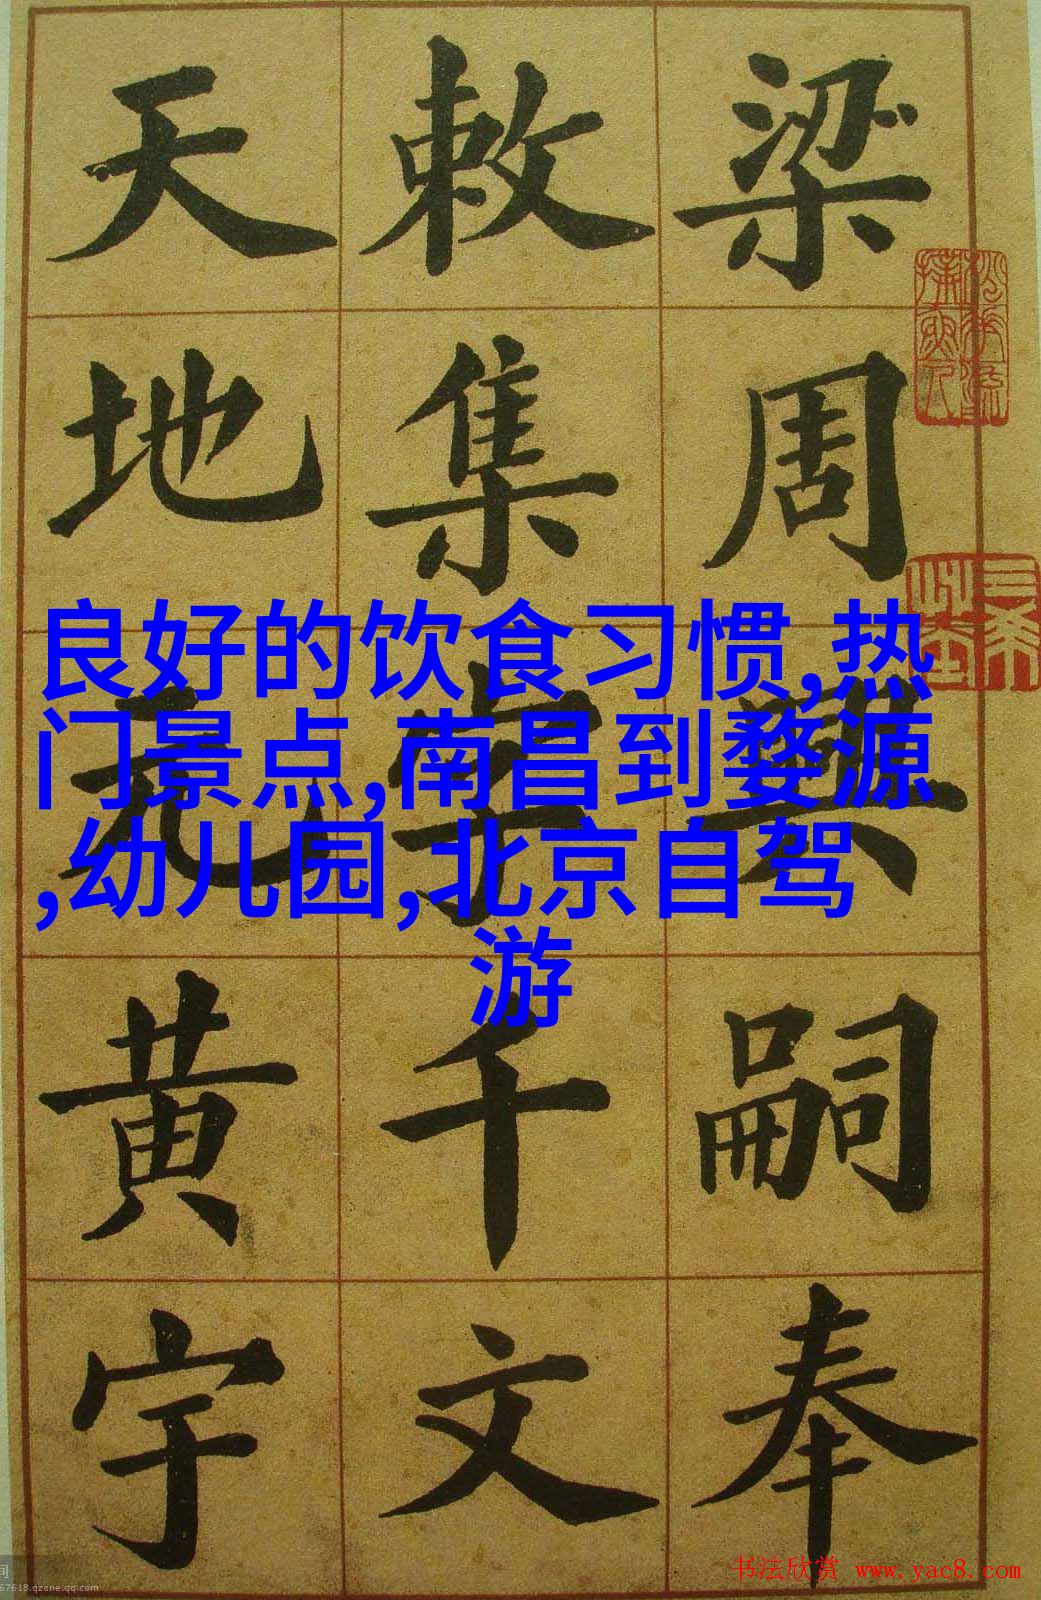 梁周興嗣奉
敕集字千文
天地元黄宇
良好的饮食习惯,热
门景点,南昌到婺源
,幼儿园,北京自驾
游
书法欣赏 www.yac8.com
间
67618.qzone.qq.com